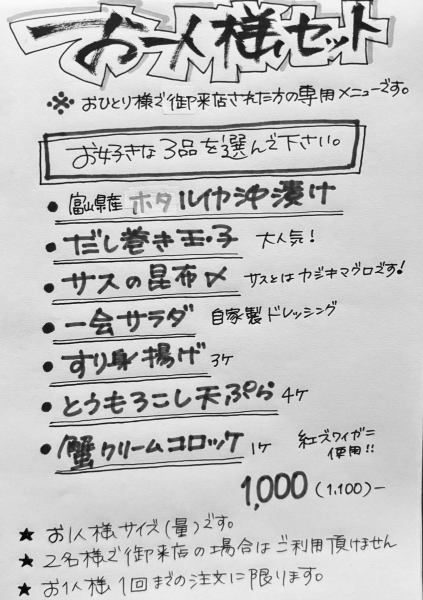 お一人様セット
※ おひとり様で御来店された方の専用メニューです。
お好きな3品を選んで下さい。
● 富山県産 ホタルイカ沖漬け
● だし巻き玉子 大人気!
● サスの昆布〆 サスとはカジキマグロです!
● 一会サラダ 自家製ドレッシング
● すり身揚げ 3ケ
● とうもろこし天ぷら 4ケ
● 蟹クリームコロッケ 1ケ 紅ズワイガニ
使用!!
1,000 (1,100)-
★ お1人様サイズ(量)です。
★ 2名様で御来店の場合はご利用頂けません
★ お1人様1回までの注文に限ります。